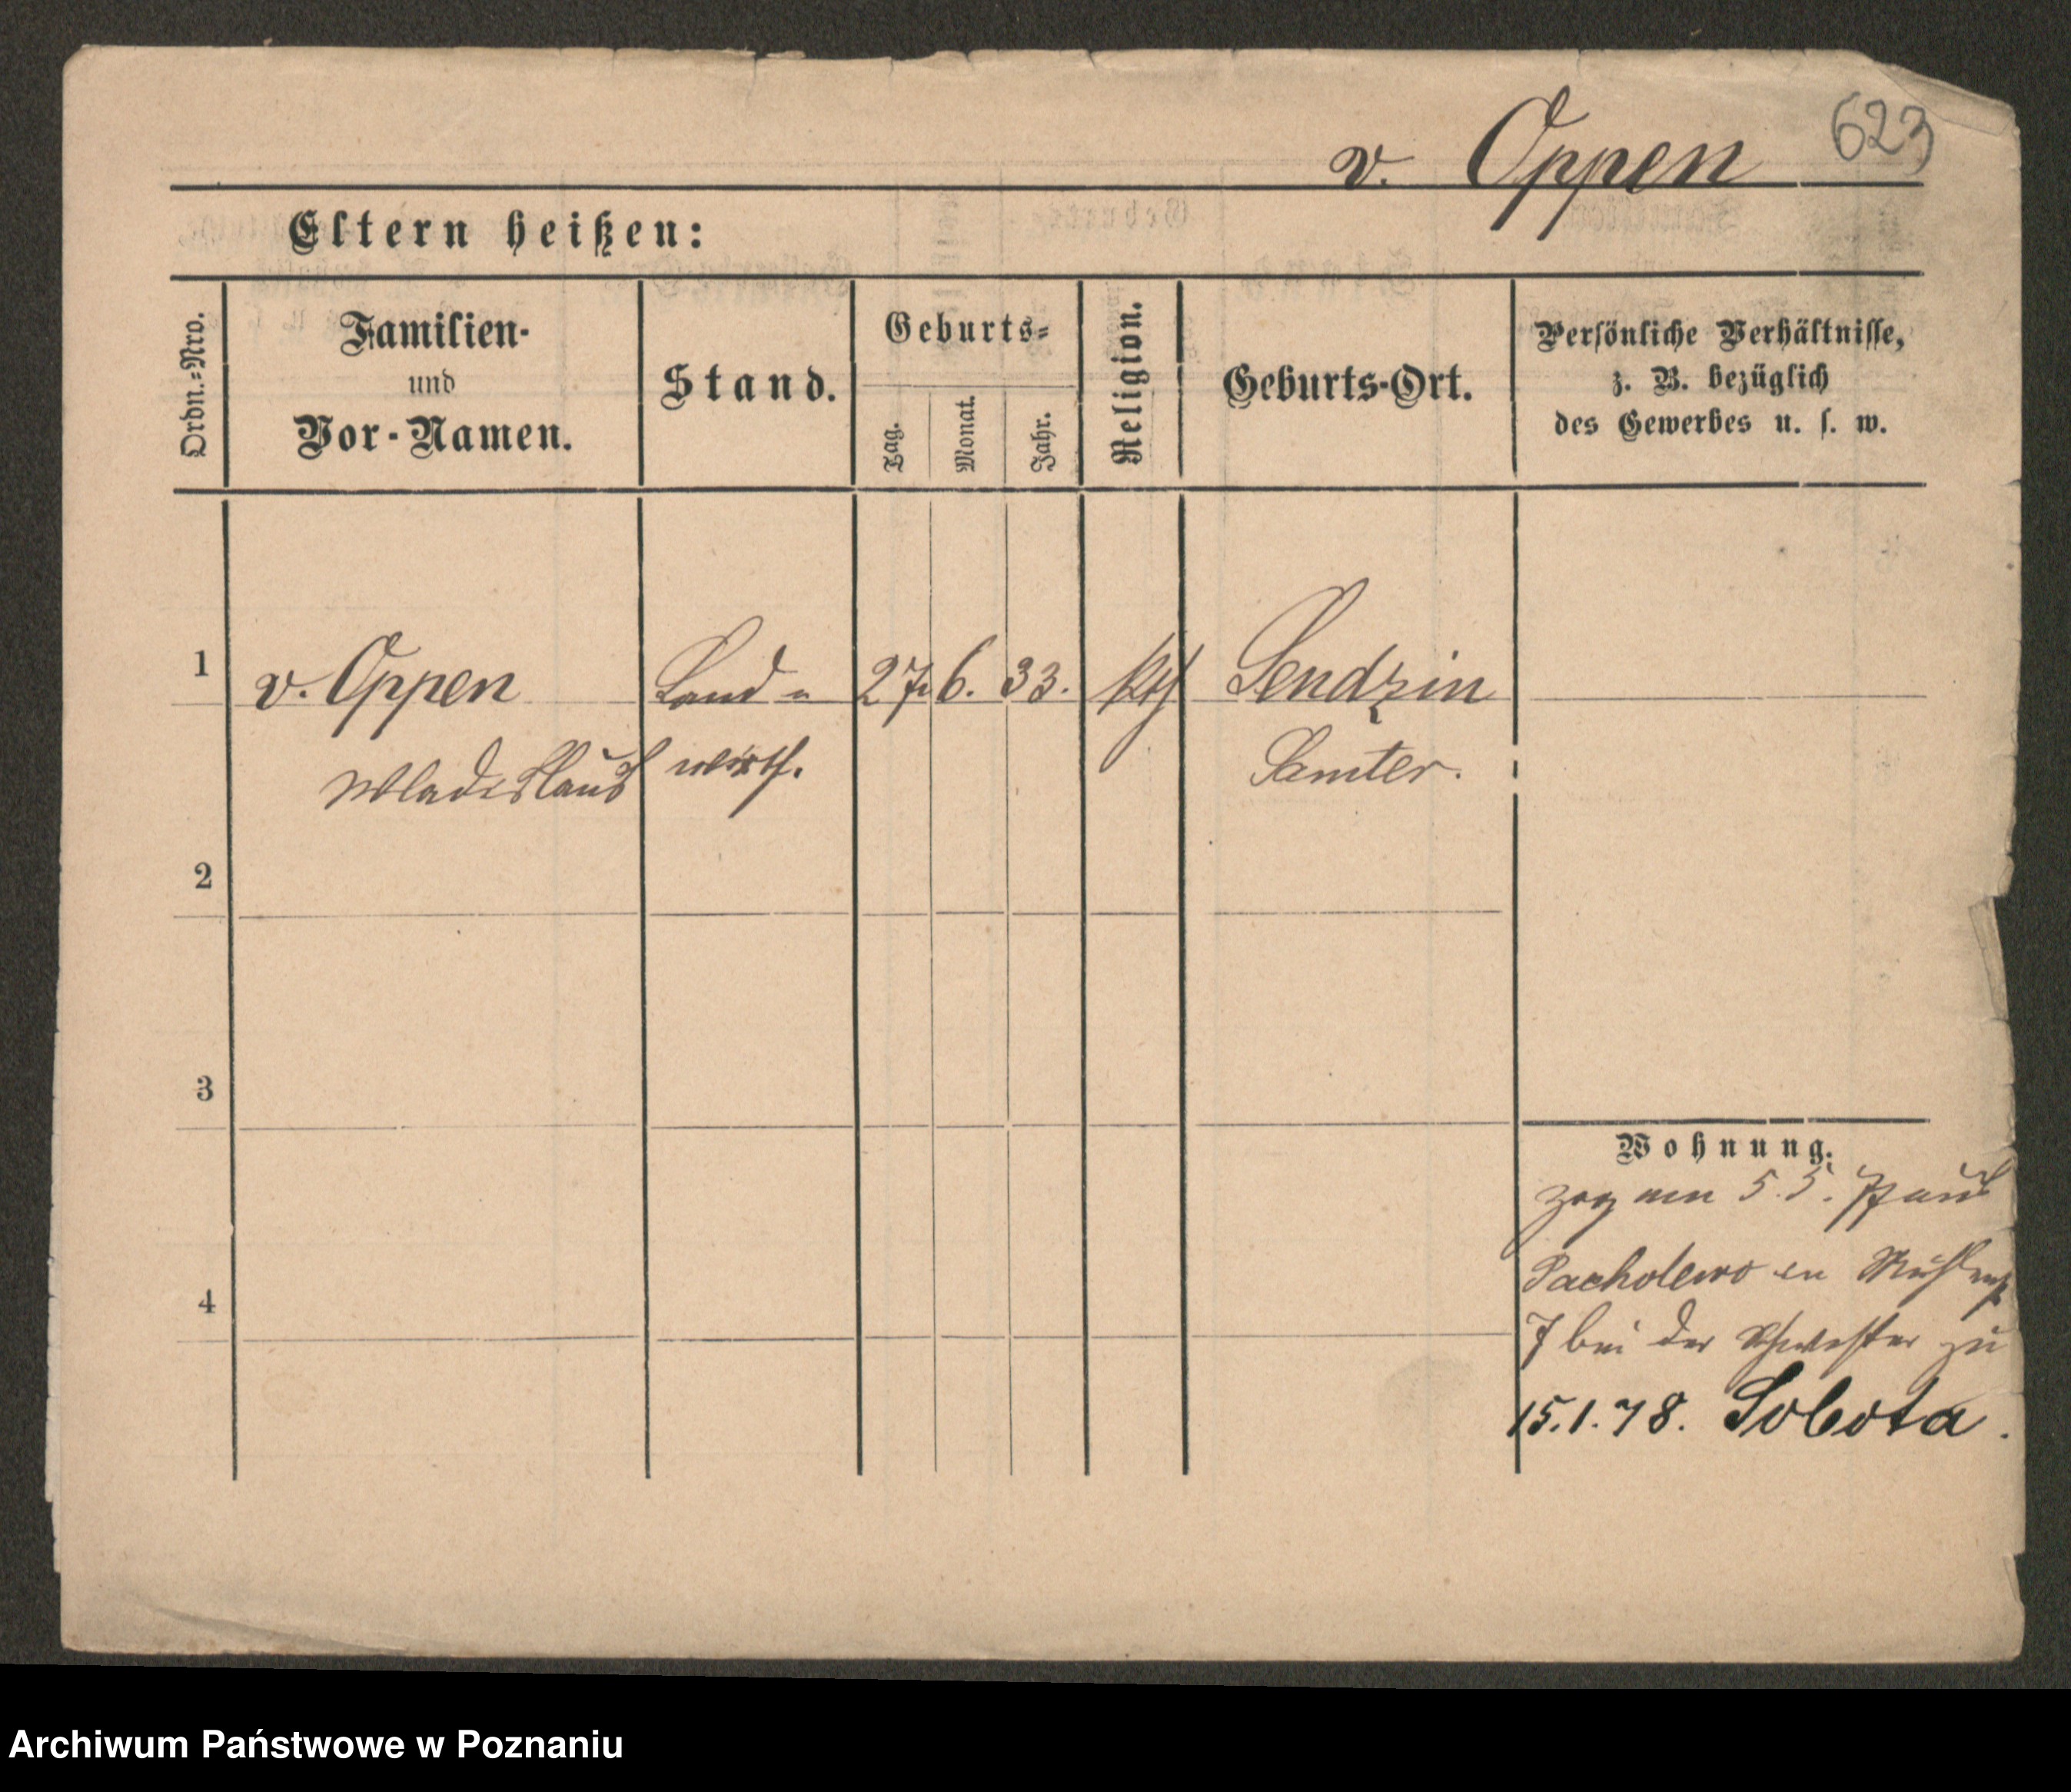 v. Oppen 623
Eltern heißen:
Ordn.-Nro.
Familien-
und
Vor-Namen.
Stand.
Geburts-
Tag.
Monat.
Jahr.
Religion.
Geburts-Ort.
Persönliche Verhältnisse,
z. B. bezüglich
des Gewerbes u. s. w.
1 v. Oppen Land- 27. 6. 33. kth Sendzin
Wladislaus wirth. Samter.
2
3
4
Wohnung.
zog am 5.5. 77 aus
Pacholewo in
7 bei der Schwester zu
15.1.78. Sobota.
Archiwum Państwowe w Poznaniu